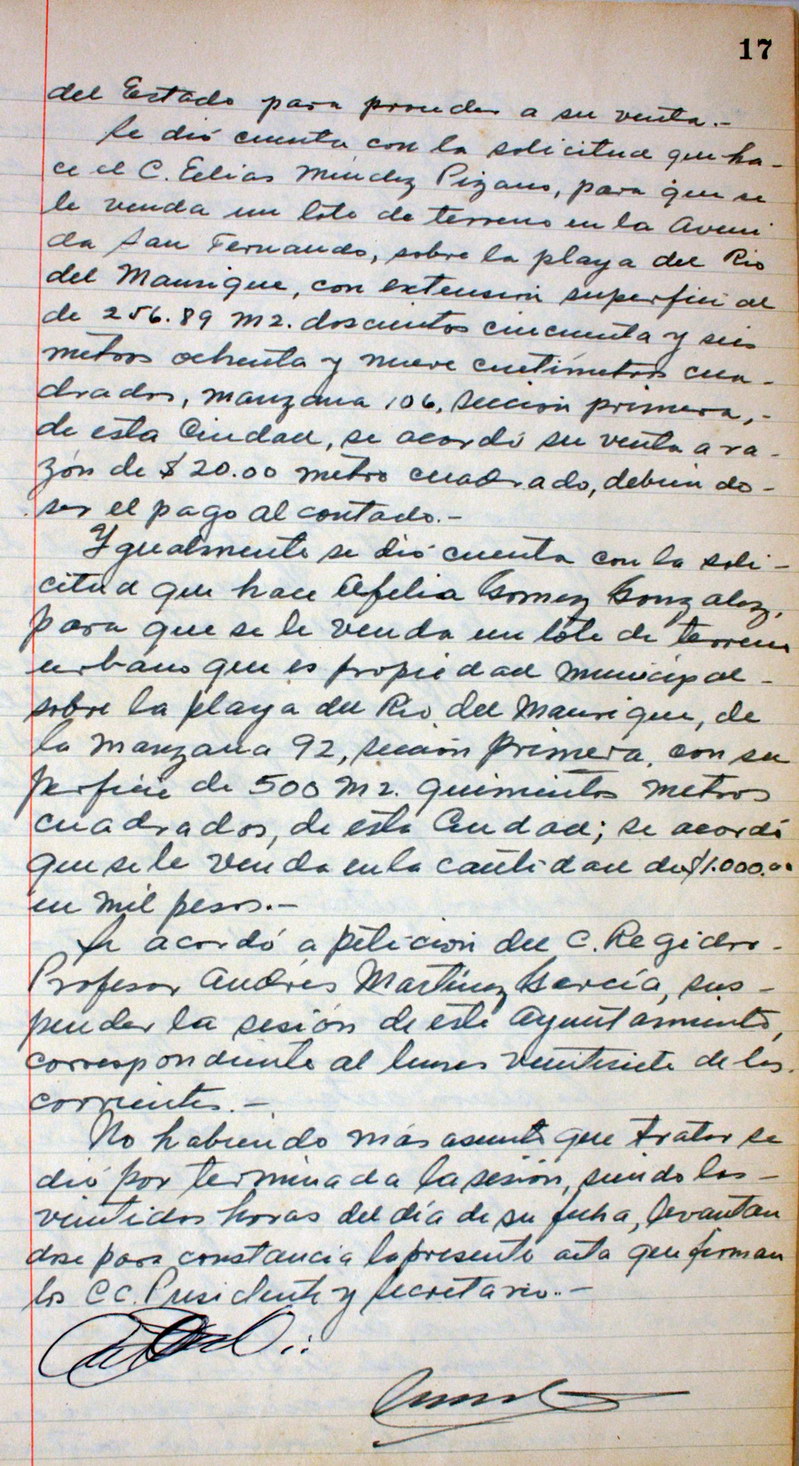 17
del Estado para proceder a su venta.-
Se dió cuenta con la solicitud que ha-
ce el C. Eelias Mendez Pizano, para que se
le venda un lote de terreno en la Aveni
da San Fernando, sobre la playa del Rio
del Manrique, con extension superficial
de 256.89 m2. doscientos cincuenta y seis
metros ochenta y nueve centímetros cua-
drados, manzana 106, seccion primera,-
de esta Ciudad, se acordó su venta a ra-
zón de $20.00 metro cuadrado, debiendo-
ser el pago al contado.-
Ygualmente se dió cuenta con la soli-
citud que hace Ofelia Gomez Gonzalez,
para que se le venda un lote de terreno
urbano que es propiedad municipal-
sobre la playa del Rio del Manrique, de
la manzana 92, sección primera, con su
perficie de 500 m2. quinientos metros
cuadrados, de esta Ciudad; se acordó
que se le venda en la cantidad de $1.000.00
un mil pesos.-
Se acordó a petición del C. Regidor-
Profesor Andrés Martínez García, sus-
pender la sesión de este Ayuntamiento,
correspondiente al lunes veintisiete de los.
corrientes.-
No habiendo más asunto que tratar se
dió por terminada la sesión, siendo las-
veintidos horas del día de su fecha, levantan
dose para constancia la presente acta que firman
los CC. Presidente y Secretario.-